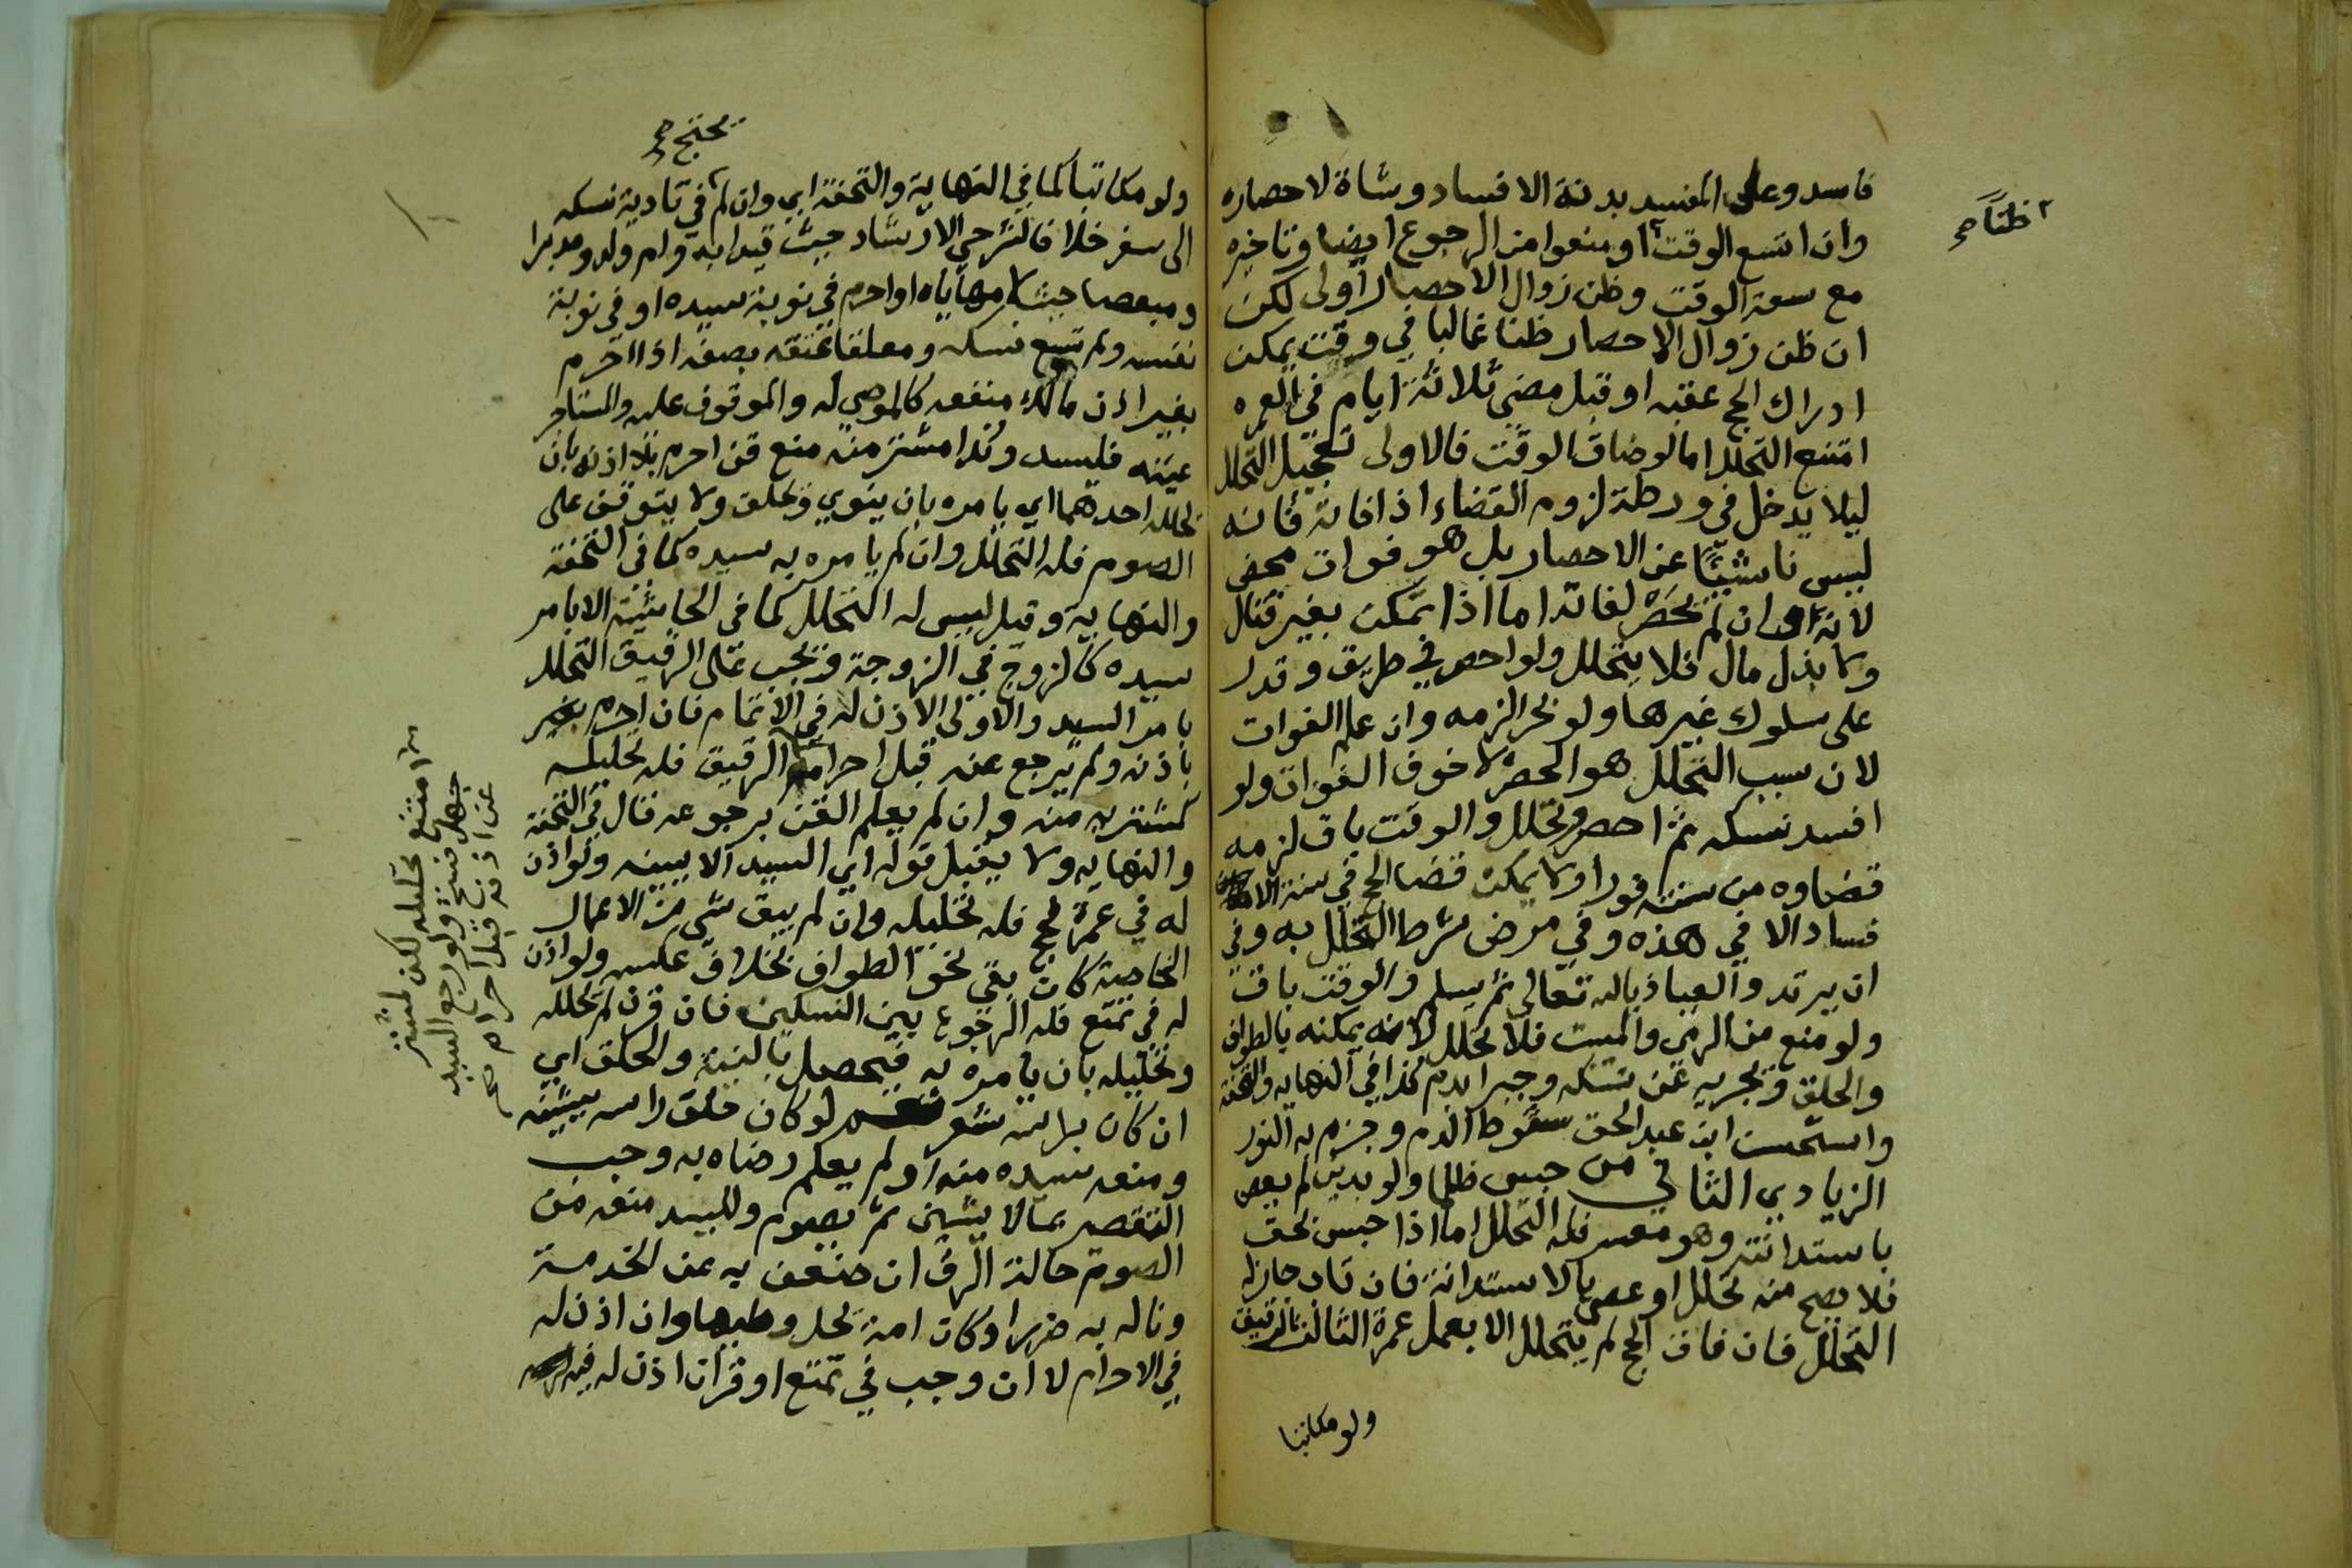 فاسد وعلى المفسد بدنة الافساد وشاة لاحصاره
وان اتسع الوقت او منعوا من الرجوع ايضا وتاخيره
مع سعة الوقت وظن زوال الاحصار اولى لكن
ان ظن زوال الاحصار ظنا غالبا في وقت يمكن
ادراك الحج عقبه او قبل مضي ثلاثة ايام في العمره
امتنع التحلل اما لو ضاق الوقت فالاولى تعجيل التحلل
ليلا يدخل في ورطة لزوم القضاء اذا فاته فانه
ليس ناشئيا عن الاحصار بل هو فوات محض
لانه وان لم يحصر لفاته اما اذا تمكن بغير قتال
ولا بذل مال فلا يتحلل ولو احصر في طريق وقدر
على سلوك غيرها ولو بحرا لزمه وان علم الفوات
لان سبب التحلل هو الحصر لا خوف الفوات ولو
افسد نسكه ثم احصر وتحلل والوقت باق لزمه
قضاوه من سنته فورا ولا يمكن قضا الحج في سنة
فساد الا في هذه وفي مرض شرط التحلل به وفي
ان يرتد والعياذ بالله تعالى ثم يسلم والوقت باق
ولو منع من الرمي والمبيت فلا تحلل لانه يمكنه بالطواف
والحلق وتجزيه عن نسكه وجبرا بدم كذا في النهايه والتحفة
واستحسن ابن عبد الحق سقوط الدم وجزم به النور
الزيادي الثاني من حبس ظلما ولو بدين لم يعص
باستدانته وهو معسر فله التحلل اما اذا حبس بحق
فلا يصح منه تحلل او عصى بالاستدانة فان تاب جاز له
التحلل فان فات الحج لم يتحلل الا بعمل عمرة الثالث الرقيق
ولو مكاتبا
ظنا صح
يحتج صح
ولو مكاتبا كما في النهاية والتحفة اي وان لم في تادية نسكه
الى سفر خلافا لشرحي الارشاد حيث قيدا به وام ولد ومدبرا
ومبعضا حيث لا مهاياه او احرم في نوبة سيده او في نوبة
نفسه ولم تسع نسكه ومعلقا عتقه بصفه اذا احرم
بغير اذن مالك منفعه كالموصى له والموقوف عليه والمستاجر
عينه فلسيد وكذا مشتر منه منع قن احرم بلا اذنه بان
تحلله احدهما اي يامره بان ينوي وتحلق ولا يتوقف على
الصوم فله التحلل وان لم يامره به سيده كما في التحفة
والنهاية وقيل ليس له التحلل كما في الحاشية الا بامر
سيده كالزوج في الزوجة ويجب على الرقيق التحلل
بامر السيد والاولى الاذن له في الاتمام فان احرم بغير
باذنه ولم يرجع عنه قبل احرام الرقيق فله تحليله
كمشتريه منه وان لم يعلم القن برجوعه قال في التحفة
والنهايه ولا يقبل قوله اي السيد الا ببينه ولو اذن
له في عمرة فحج فله تحليله وان لم يبق شي من الاعمال
الخاصة كان بقي نحو الطواف بخلاف عكسه ولو اذن
له في تمتع فله الرجوع بين النسكين فان قرن لم يحلله
وتحليله بان يامره به فيحصل بالنية والحلق اي
ان كان براسه شعر لو كان حلق راسه يشينه
ومنعه سيده منه او لم يعلم رضاه به وجب
التقصير بما لا يشين ثم بصوم وللسيد منعه من
الصوم حالة الرق ان ضعف به عن الخدمة
وناله به ضررا وكان امة يحل وطيها وان اذن له
في الاحرام لا ان وجب في تمتع او قران اذن له فيه
امتنع تحليله لكن لمشتر
جهل فسخ ولو رجع السيد
عن اذنه قبل احرام صح